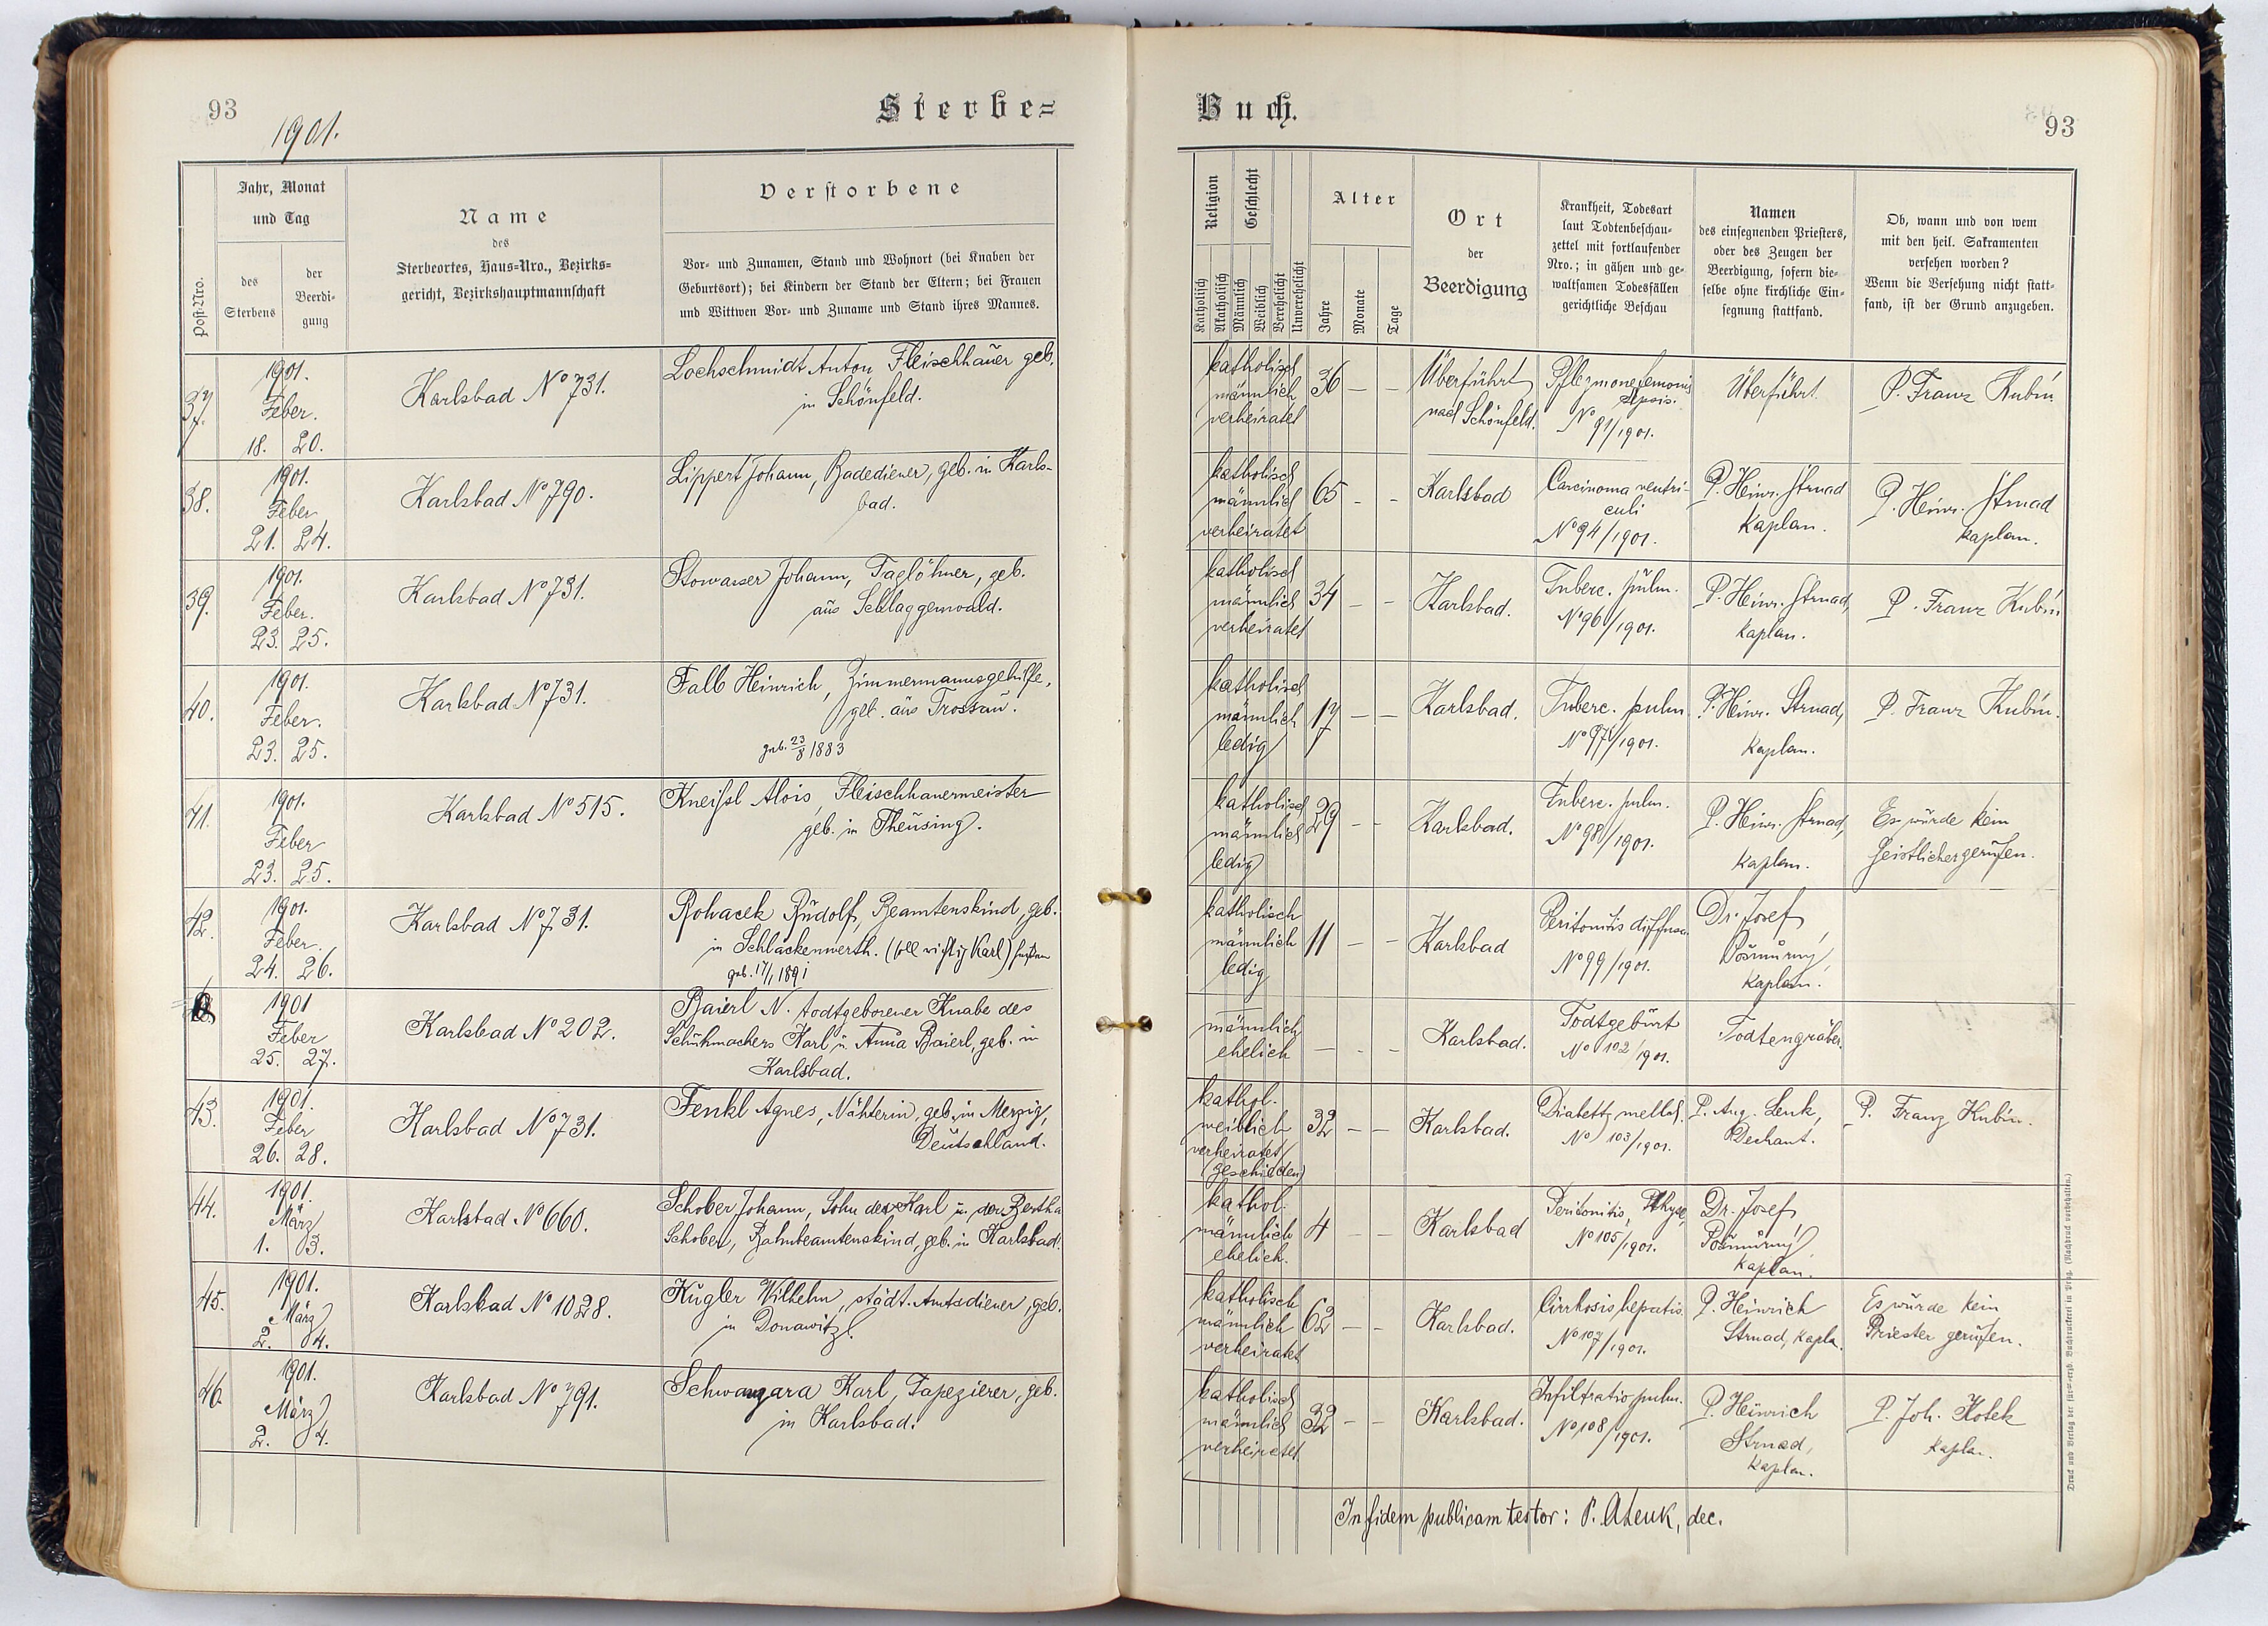 93
1901.
Sterbe=
Jahr, Monat
und Tag
Name
des
Sterbeortes, Haus=Nro., Bezirks=
gericht, Bezirkshauptmannschaft
Verstorbene
Post=Nro.
des
Sterbens
der
Beerdi=
gung
Vor= und Zunamen, Stand und Wohnort (bei Knaben der
Geburtsort); bei Kindern der Stand der Eltern; bei Frauen
und Wittwen Vor= und Zuname und Stand ihres Mannes.
37.
1901.
Feber.
18. 20.
Karlsbad No 731.
Lochschmidt Anton Fleischhauer geb.
in Schönfeld.
38.
1901.
Feber
21. 24.
Karlsbad No 790.
Lippert Johann, Badediener, geb. in Karls-
bad.
39.
1901.
Feber.
23. 25.
Karlsbad No 731.
Stowasser Johann, Taglöhner, geb.
aus Schlaggenwald.
40.
1901.
Feber.
23. 25.
Karlsbad No 731.
Falb Heinrich, Zimmermannsgehilfe,
geb. aus Trossau.
geb. 23/8 1883
41.
1901.
Feber
23. 25.
Karlsbad No 515.
Kneissl Alois, Fleischhauermeister
geb. in Theusing.
42.
1901.
Feber.
24. 26.
Karlsbad No 731.
Rohacek Rudolf, Beamtenskind, geb.
in Schlackenwerth. (soll richtig Karl) heißen
geb. 17/1 1891
1901
Feber
25. 27.
Karlsbad No 202.
Baierl N. todtgeborener Knabe des
Schuhmachers Karl u. Anna Baierl, geb. in
Karlsbad.
43.
1901.
Feber
26. 28.
Karlsbad No 731.
Fenkl Agnes, Nähterin, geb. in Merzig,
Deutschland.
44.
1901.
März
1. 3.
Karlsbad No 660.
Schober Johann, Sohn des Karl u. der Bertha
Schober, Bahnbeamtenskind, geb. in Karlsbad.
45.
1901.
März
2. 4.
Karlsbad No 1028.
Kugler Wilhelm, städt. Amtsdiener, geb.
in Donawitz.
46.
1901.
März
2. 4.
Karlsbad No 791.
Schwangara Karl, Tapezierer, geb.
in Karlsbad.
Buch.
93
Religion
Geschlecht
Katholisch
Akatholisch
Männlich
Weiblich
Verehelicht
Unverehelicht
Alter
Jahre
Monate
Tage
Ort
der
Beerdigung
Krankheit, Todesart
laut Todtenbeschau=
zettel mit fortlaufender
Nro.; in gähen und ge=
waltsamen Todesfällen
gerichtliche Beschau
Namen
des einsegnenden Priesters,
oder des Zeugen der
Beerdigung, sofern die=
selbe ohne kirchliche Ein=
segnung stattfand.
Ob, wann und von wem
mit den heil. Sakramenten
versehen worden?
Wenn die Versehung nicht statt=
fand, ist der Grund anzugeben.
katholisch
männlich
verheiratet
36 — —
Überführt
nach Schönfeld.
sepsis.
No 91/1901.
Überführt.
P. Franz Kubín
katholisch
männlich
verheiratet
65 - -
Karlsbad
Carcinoma ventri-
culi
No 94/1901.
P. Heinr. Strnad
Kaplan.
P. Heinr. Strnad
Kaplan.
katholisch
männlich
verheiratet
34 — -
Karlsbad.
Tuberc. pulm.
No 96/1901.
P. Heinr. Strnad,
Kaplan.
P. Franz Kubín
katholisch
männlich
ledig
17 — —
Karlsbad.
Tuberc. pulm.
No 97/1901.
P. Heinr. Strnad,
Kaplan.
P. Franz Kubín.
katholisch
männlich
ledig
29 - -
Karlsbad.
Tuberc. pulm.
No 98/1901.
P. Heinr. Strnad,
Kaplan.
Es wurde kein
Geistlicher gerufen.
katholisch
männlich
ledig
11 — -
Karlsbad
Peritonitis diffusa
No 99/1901.
Dr. Josef
Kaplan.
männlich
ehelich
— - -
Karlsbad.
Todtgeburt
No 102/1901.
Todtengräber.
kathol.
weiblich
verheiratet
(geschieden)
32 — —
Karlsbad.
Diabett. mellit.
No 103/1901.
P. Aug. Lenk,
Dechant.
P. Franz Kubín.
kathol.
männlich
ehelich.
4 — -
Karlsbad
Peritonitis,
No 105/1901.
Dr. Josef
Kaplan.
katholisch
männlich
verheiratet
62 — -
Karlsbad.
Cirrhosis hepatis.
No 107/1901.
P. Heinrich
Strnad, Kapla.
Es wurde kein
Priester gerufen.
katholisch
männlich
verheiratet
32 - -
Karlsbad.
Infiltratio pulm.
No 108/1901.
P. Heinrich
Strnad,
Kaplan.
P. Joh. Kotek
Kaplan.
In fidem publicam testor: P. A. Lenk, dec.
Druck und Verlag der fürst=erzb. Buchdruckerei in Prag. (Nachdruck vorbehalten.)